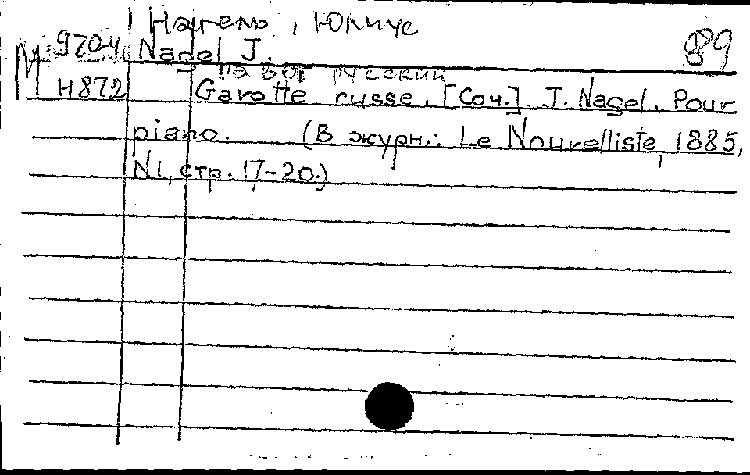 Нагель, Юлиус
М 9704 Nagel J. 89
Гавот русский
Н872 Gavotte russe. [Соч.] J. Nagel. Pour
piano. (В журн.: Le Nouvelliste, 1885,
N1, стр. 17-20.)